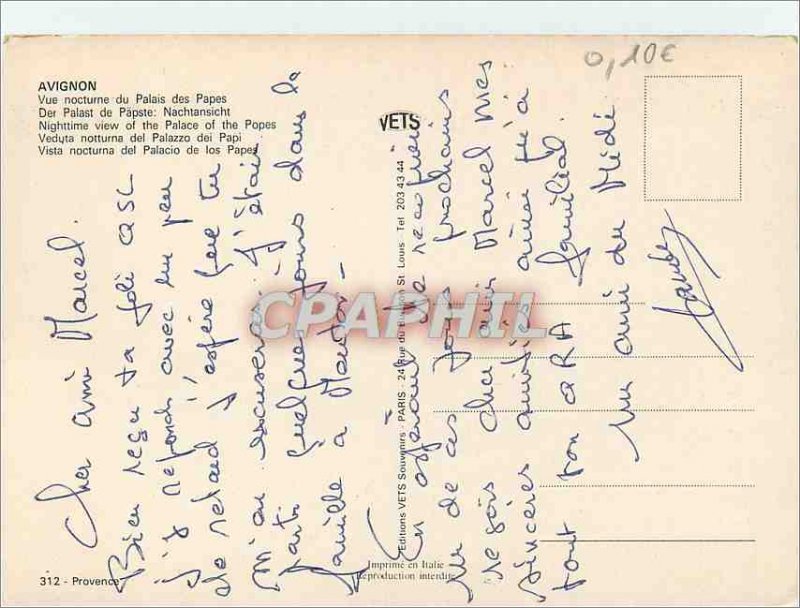 0,10€
AVIGNON
Vue nocturne du Palais des Papes
Der Palast de Päpste: Nachtansicht
Nighttime view of the Palace of the Popes
Veduta notturna del Palazzo dei Papi
Vista nocturna del Palacio de los Papes
VETS
Editions VETS Souvenirs - PARIS : 24 Rue du St. Louis - Tel 203 43 44
CPAPHIL
Cher ami Marcel.
Bien reçu ta joli QSL
j'y reponds avec un peu
de retard j'espère que tu
m'en excuseras. J'étais
parti quelques jours dans la
famille à Menton -
En espérant de
un de ces jours prochains
reçois cher ami Marcel mes
sincères amitiés ainsi qu'à
tout ton QRA familial.
un ami du Midi
312 - Provence
Imprimé en Italie
Reproduction interdite